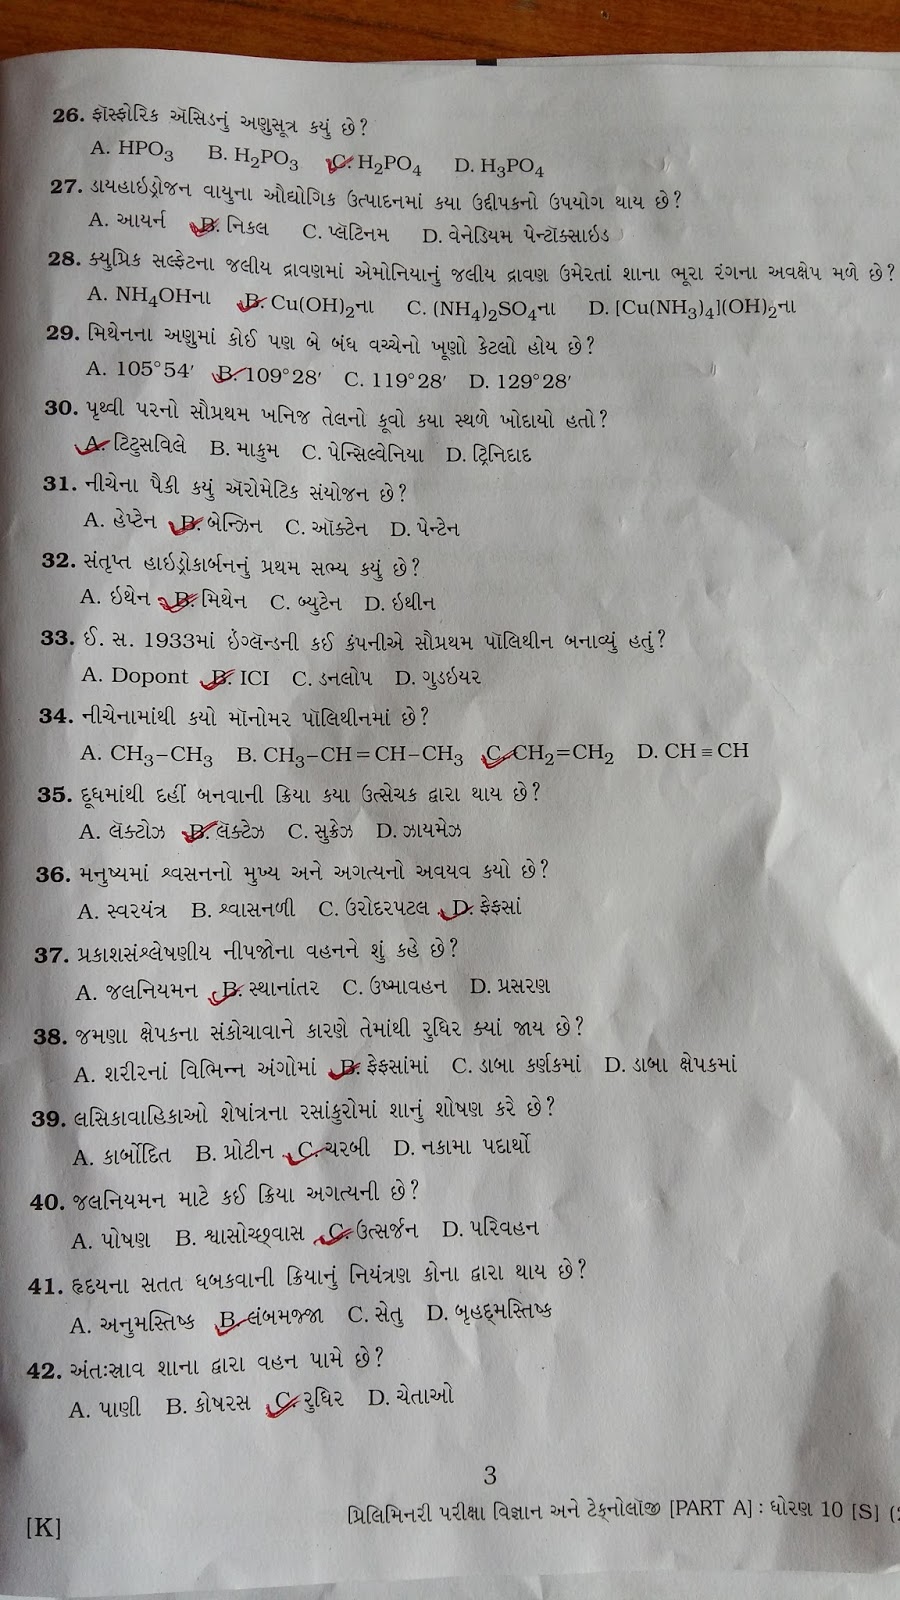 26. ફૉસ્ફોરિક ઍસિડનું અણુસૂત્ર કયું છે?
A. HPO₃ B. H₂PO₃ C. H₂PO₄ D. H₃PO₄
27. ડાયહાઇડ્રોજન વાયુના ઔદ્યોગિક ઉત્પાદનમાં કયા ઉદ્દીપકનો ઉપયોગ થાય છે?
A. આયર્ન B. નિકલ C. પ્લૅટિનમ D. વેનેડિયમ પેન્ટૉક્સાઇડ
28. ક્યુપ્રિક સલ્ફેટના જલીય દ્રાવણમાં એમોનિયાનું જલીય દ્રાવણ ઉમેરતાં શાના ભૂરા રંગના અવક્ષેપ મળે છે?
A. NH₄OHના B. Cu(OH)₂ના C. (NH₄)₂SO₄ના D. [Cu(NH₃)₄](OH)₂ના
29. મિથેનના અણુમાં કોઈ પણ બે બંધ વચ્ચેનો ખૂણો કેટલો હોય છે?
A. 105°54′ B. 109°28′ C. 119°28′ D. 129°28′
30. પૃથ્વી પરનો સૌપ્રથમ ખનિજ તેલનો કૂવો કયા સ્થળે ખોદાયો હતો?
A. ટિટુસવિલે B. માકુમ C. પેન્સિલ્વેનિયા D. ટ્રિનિદાદ
31. નીચેના પૈકી કયું ઍરોમેટિક સંયોજન છે?
A. હેપ્ટેન B. બેન્ઝિન C. ઑક્ટેન D. પેન્ટેન
32. સંતૃપ્ત હાઇડ્રોકાર્બનનું પ્રથમ સભ્ય કયું છે?
A. ઇથેન B. મિથેન C. બ્યુટેન D. ઇથીન
33. ઈ. સ. 1933માં ઇંગ્લૅન્ડની કઈ કંપનીએ સૌપ્રથમ પૉલિથીન બનાવ્યું હતું?
A. Dopont B. ICI C. ડનલોપ D. ગુડઇયર
34. નીચેનામાંથી કયો મૉનોમર પૉલિથીનમાં છે?
A. CH₃−CH₃ B. CH₃−CH=CH−CH₃ C. CH₂=CH₂ D. CH≡CH
35. દૂધમાંથી દહીં બનવાની ક્રિયા કયા ઉત્સેચક દ્વારા થાય છે?
A. લૅક્ટોઝ B. લૅક્ટેઝ C. સુક્રેઝ D. ઝાયમેઝ
36. મનુષ્યમાં શ્વસનનો મુખ્ય અને અગત્યનો અવયવ કયો છે?
A. સ્વરયંત્ર B. શ્વાસનળી C. ઉરોદરપટલ D. ફેફસાં
37. પ્રકાશસંશ્લેષણીય નીપજોના વહનને શું કહે છે?
A. જલનિયમન B. સ્થાનાંતર C. ઉષ્માવહન D. પ્રસરણ
38. જમણા ક્ષેપકના સંકોચાવાને કારણે તેમાંથી રુધિર ક્યાં જાય છે?
A. શરીરનાં વિભિન્ન અંગોમાં B. ફેફસાંમાં C. ડાબા કર્ણકમાં D. ડાબા ક્ષેપકમાં
39. લસિકાવાહિકાઓ શેષાંત્રના રસાંકુરોમાં શાનું શોષણ કરે છે?
A. કાર્બોદિત B. પ્રોટીન C. ચરબી D. નકામા પદાર્થો
40. જલનિયમન માટે કઈ ક્રિયા અગત્યની છે?
A. પોષણ B. શ્વાસોચ્છ્વાસ C. ઉત્સર્જન D. પરિવહન
41. હૃદયના સતત ધબકવાની ક્રિયાનું નિયંત્રણ કોના દ્વારા થાય છે?
A. અનુમસ્તિષ્ક B. લંબમજ્જા C. સેતુ D. બૃહદ્‌મસ્તિષ્ક
42. અંતઃસ્રાવ શાના દ્વારા વહન પામે છે?
A. પાણી B. કોષરસ C. રુધિર D. ચેતાઓ
3
[K] પ્રિલિમિનરી પરીક્ષા વિજ્ઞાન અને ટેક્નોલૉજી [PART A] : ધોરણ 10 [S]